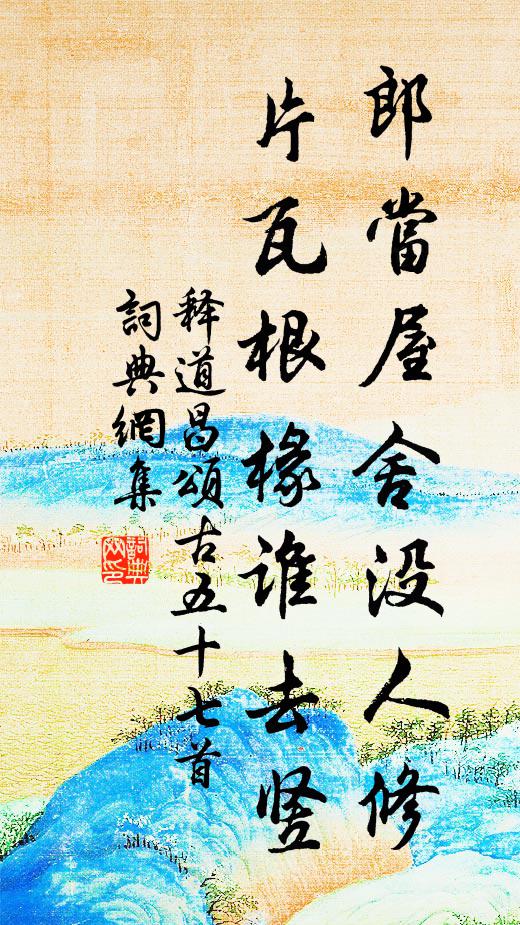 郎當屋舍没人修
片瓦根椽谁去竖
释道昌頌古五十七首
詞典網集
詞典網印